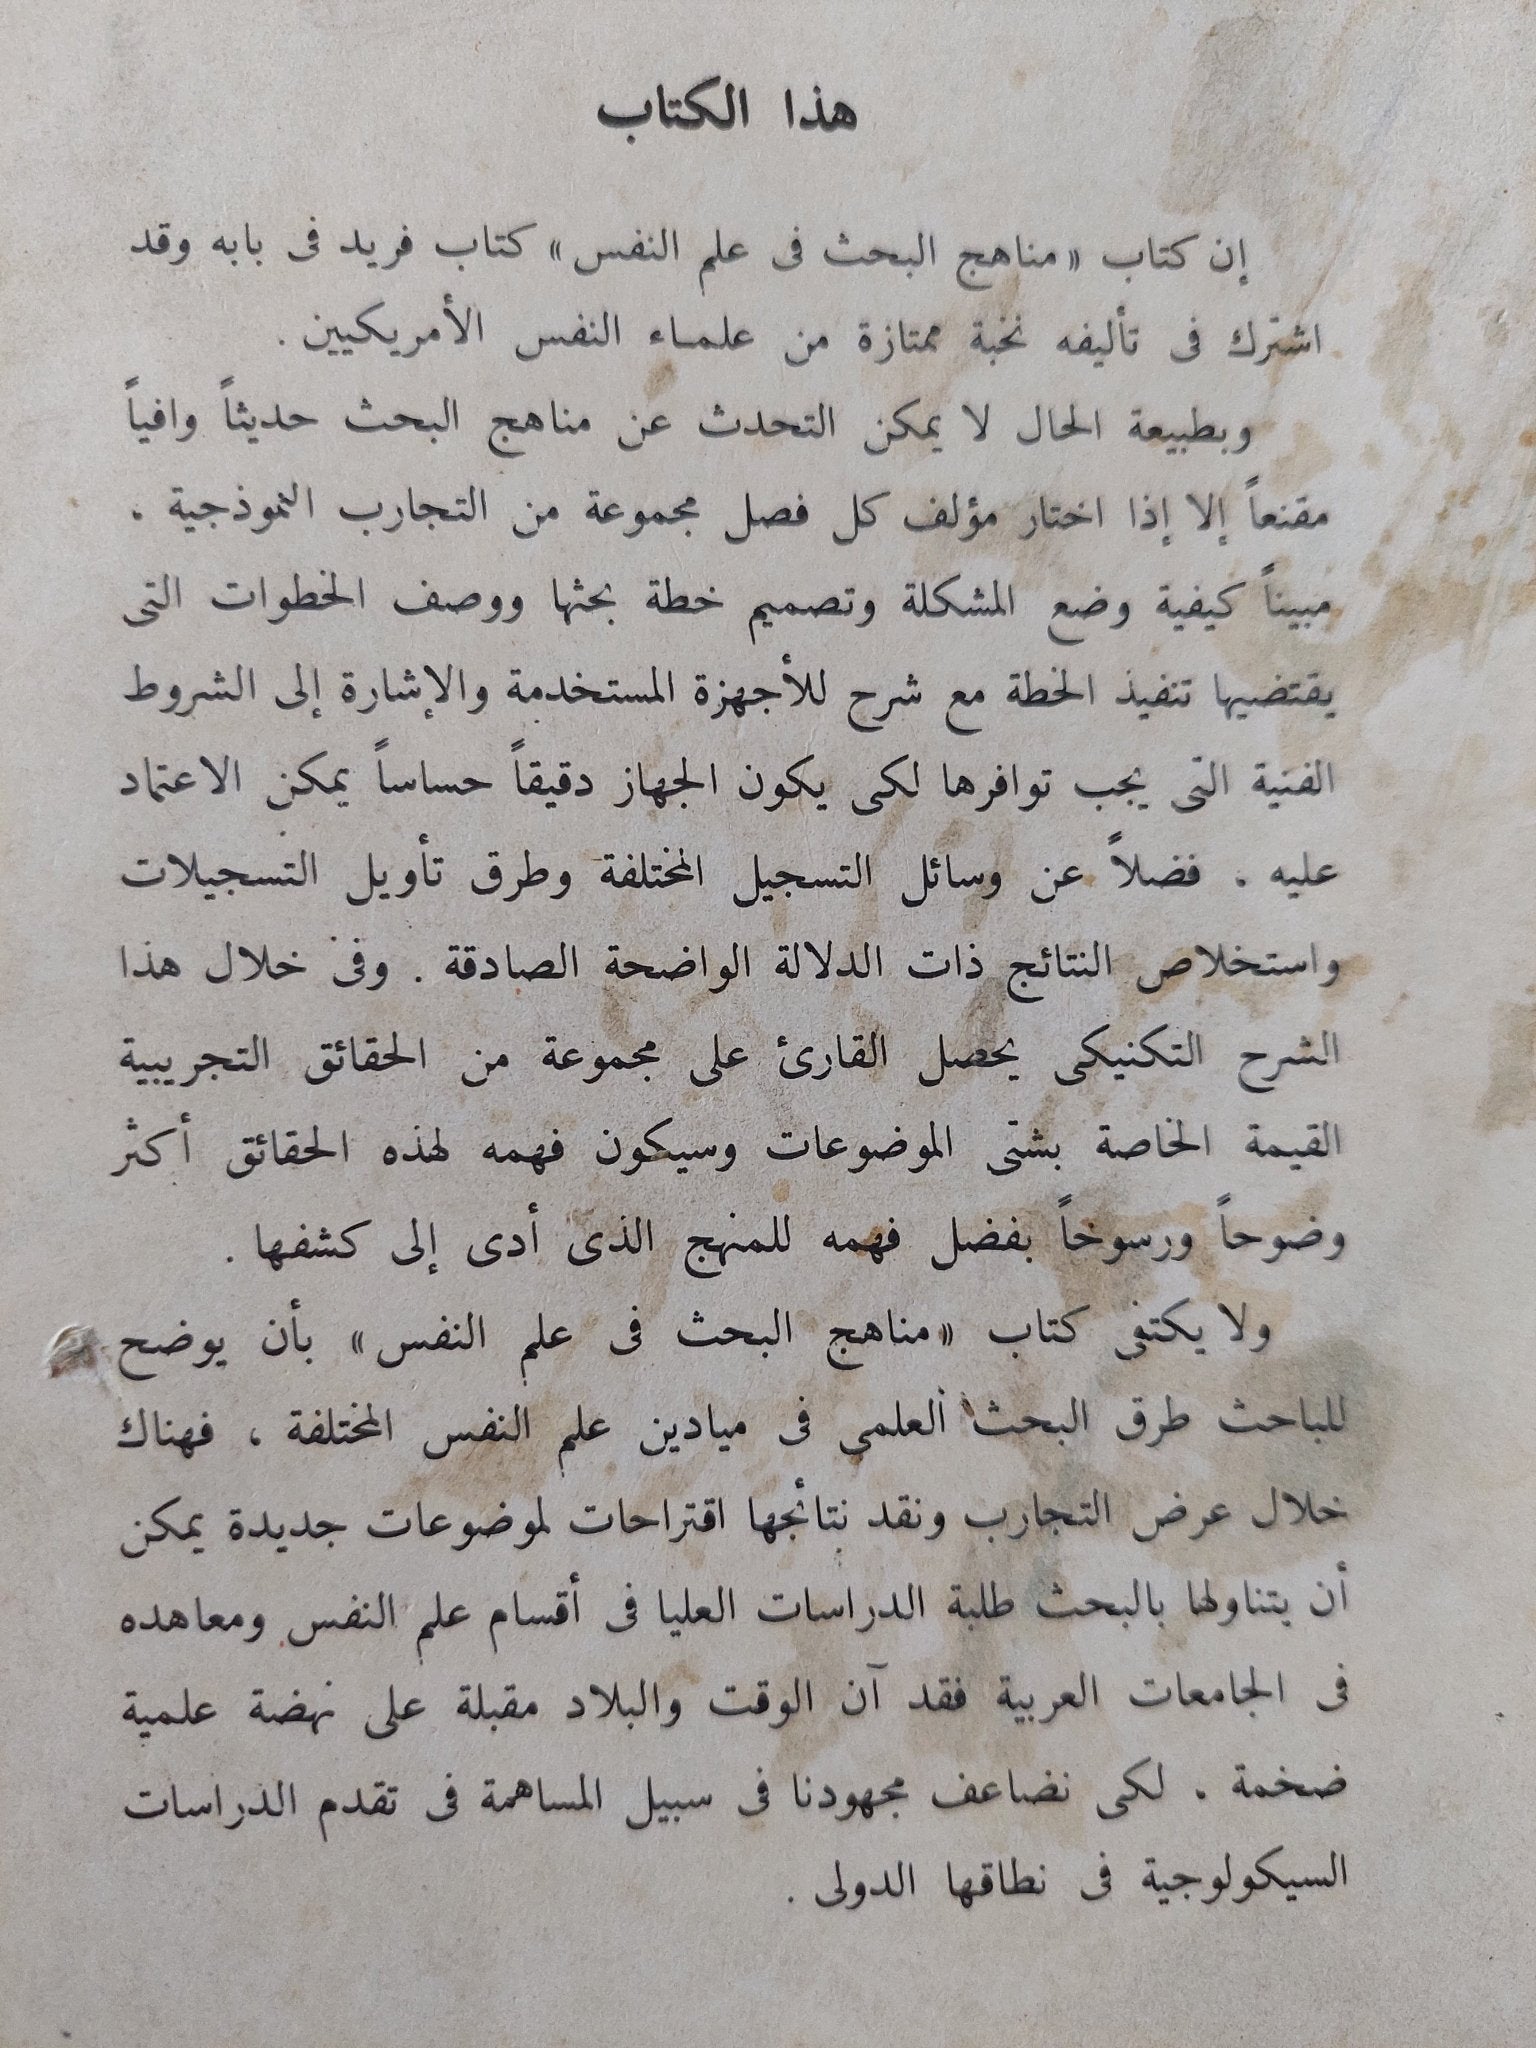 هذا الكتاب
إن كتاب « مناهج البحث فى علم النفس » كتاب فريد فى بابه وقد
اشترك فى تأليفه نخبة ممتازة من علماء النفس الأمريكيين .
وبطبيعة الحال لا يمكن التحدث عن مناهج البحث حديثاً وافياً
مقنعاً إلا إذا اختار مؤلف كل فصل مجموعة من التجارب النموذجية .
مبيناً كيفية وضع المشكلة وتصميم خطة بحثها ووصف الخطوات التى
يقتضيها تنفيذ الخطة مع شرح للأجهزة المستخدمة والإشارة إلى الشروط
الفنية التى يجب توافرها لكى يكون الجهاز دقيقاً حساساً يمكن الاعتماد
عليه . فضلاً عن وسائل التسجيل المختلفة وطرق تأويل التسجيلات
واستخلاص النتائج ذات الدلالة الواضحة الصادقة . وفى خلال هذا
الشرح التكنيكى يحصل القارئ على مجموعة من الحقائق التجريبية
القيمة الخاصة بشتى الموضوعات وسيكون فهمه لهذه الحقائق أكثر
وضوحاً ورسوخاً بفضل فهمه للمنهج الذى أدى إلى كشفها .
ولا يكتفى كتاب « مناهج البحث فى علم النفس » بأن يوضح
للباحث طرق البحث العلمى فى ميادين علم النفس المختلفة ، فهناك
خلال عرض التجارب ونقد نتائجها اقتراحات لموضوعات جديدة يمكن
أن يتناولها بالبحث طلبة الدراسات العليا فى أقسام علم النفس ومعاهده
فى الجامعات العربية فقد آن الوقت والبلاد مقبلة على نهضة علمية
ضخمة . لكى نضاعف مجهودنا فى سبيل المساهمة فى تقدم الدراسات
السيكولوجية فى نطاقها الدولى .